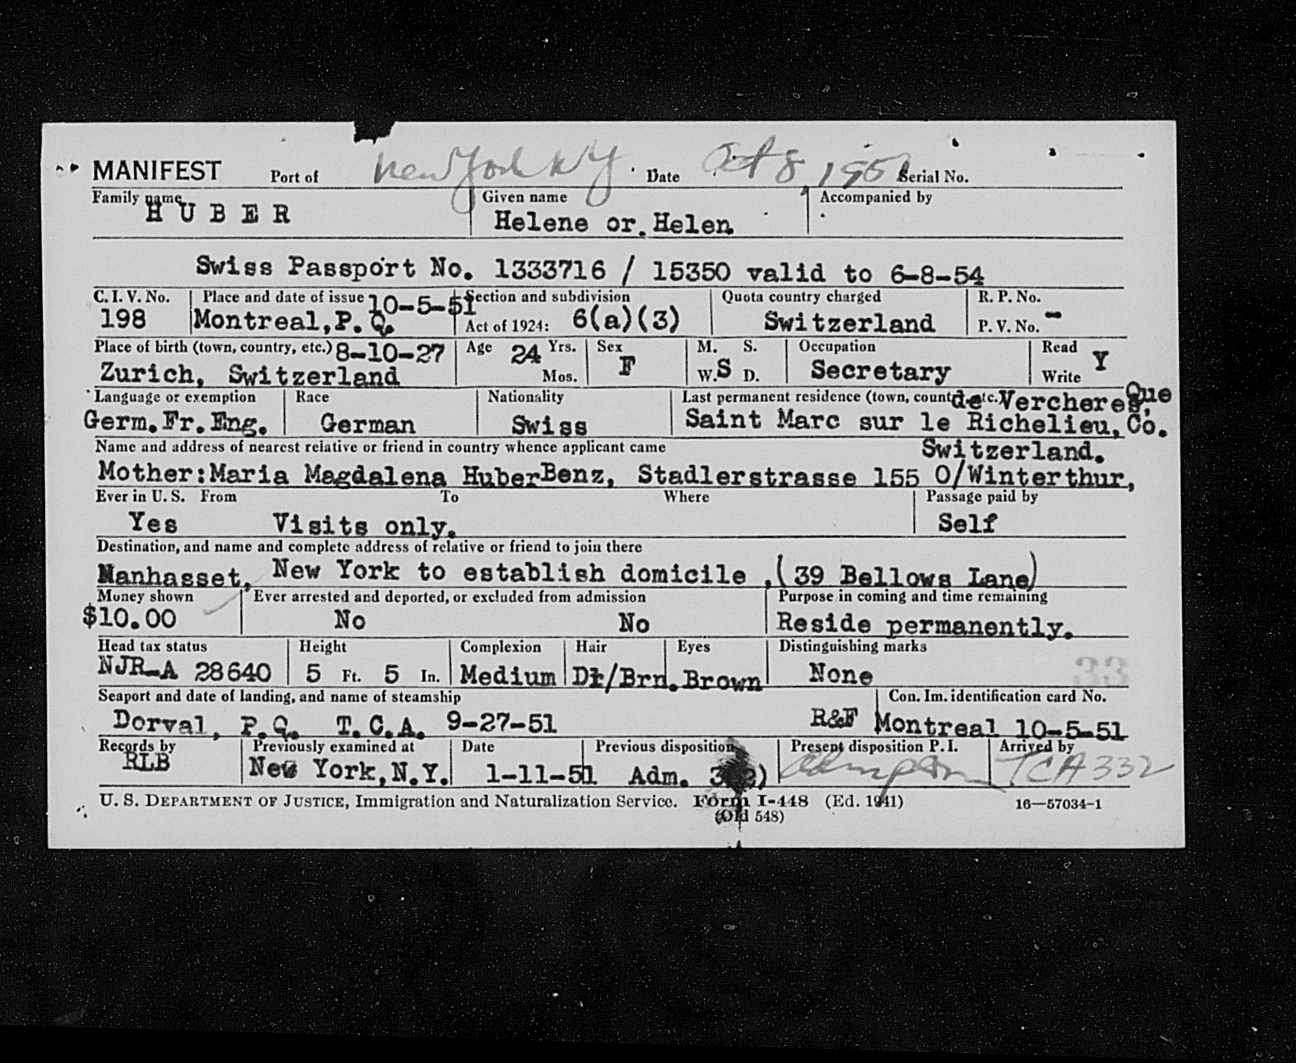 MANIFEST Port of New York NY Date Oct 8, 1951 Serial No.
Family name Given name Accompanied by
HUBER Helene or Helen
Swiss Passport No. 1333716 / 15350 valid to 6-8-54
C. I. V. No. Place and date of issue 10-5-51 Section and subdivision Quota country charged R. P. No.
198 Montreal,P.Q. Act of 1924: 6(a)(3) Switzerland P. V. No. -
Place of birth (town, country, etc.) 8-10-27 Age 24 Yrs. Sex M. S. Occupation Read Y
Zurich, Switzerland Mos. F W. S D. Secretary Write
Language or exemption Race Nationality Last permanent residence (town, count etc. de Vercheres, Que
Germ.Fr.Eng. German Swiss Saint Marc sur le Richelieu, Co.
Name and address of nearest relative or friend in country whence applicant came Switzerland.
Mother:Maria Magdalena Huber Benz, Stadlerstrasse 155 O/Winterthur,
Ever in U. S. From To Where Passage paid by
Yes Visits only. Self
Destination, and name and complete address of relative or friend to join there
Manhasset, New York to establish domicile , (39 Bellows Lane)
Money shown Ever arrested and deported, or excluded from admission Purpose in coming and time remaining
$10.00 No No Reside permanently.
Head tax status Height Complexion Hair Eyes Distinguishing marks
NJR-A 28640 5 Ft. 5 In. Medium Dk/Brn. Brown None
33
Seaport and date of landing, and name of steamship Con. Im. identification card No.
Dorval, P.Q. T.C.A. 9-27-51 R&F Montreal 10-5-51
Records by Previously examined at Date Previous disposition Present disposition P. I. Arrived by
RLB New York,N.Y. 1-11-51 Adm. TCA 332
U. S. DEPARTMENT OF JUSTICE, Immigration and Naturalization Service. Form I-448 (Ed. 1941) 16—57034-1
(Old 548)